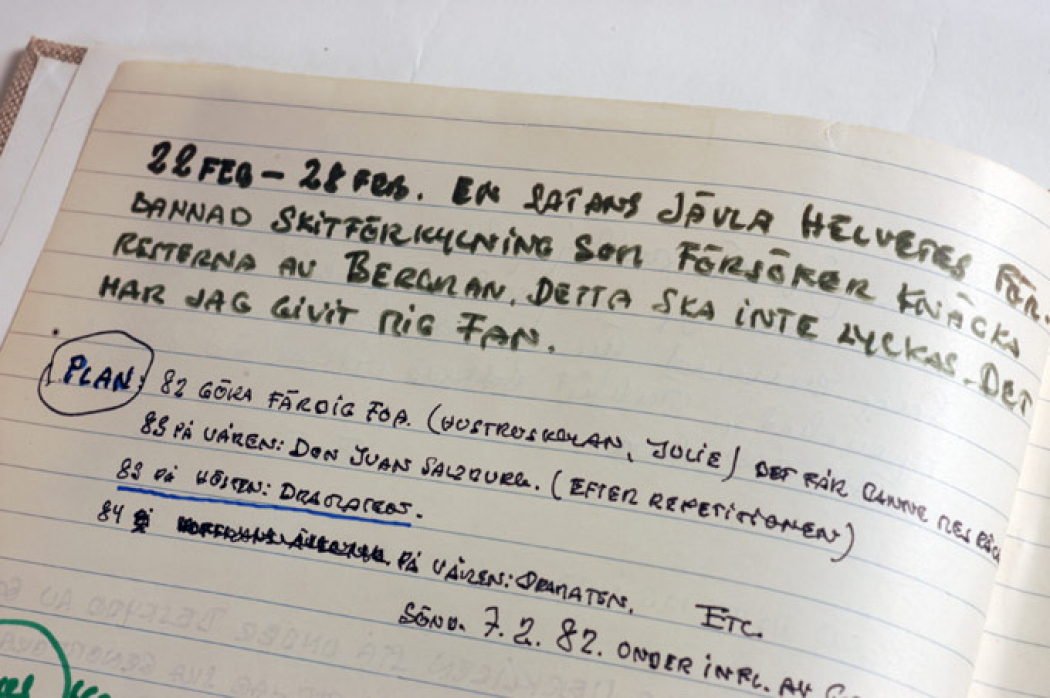 22 FEB – 28 FEB. EN SATANS JÄVLA HELVETES FÖR-
BANNAD SKITFÖRKYLNING SOM FÖRSÖKER KNÄCKA
RESTERNA AV BERGMAN. DETTA SKA INTE LYCKAS. DET
HAR JAG GIVIT MIG FAN.
PLAN: 82 GÖRA FÄRDIG FOA. (HUSTRUSKOLAN, JULIE) DET FÅR BANNE MEJ RÄCK
83 PÅ VÅREN: DON JUAN SALZBURG. (EFTER REPETITIONEN)
83 PÅ HÖSTEN: DRAMATEN.
84 PÅ VÅREN: DRAMATEN. ETC.
SÖND. 7.2.82. UNDER INFL. AV